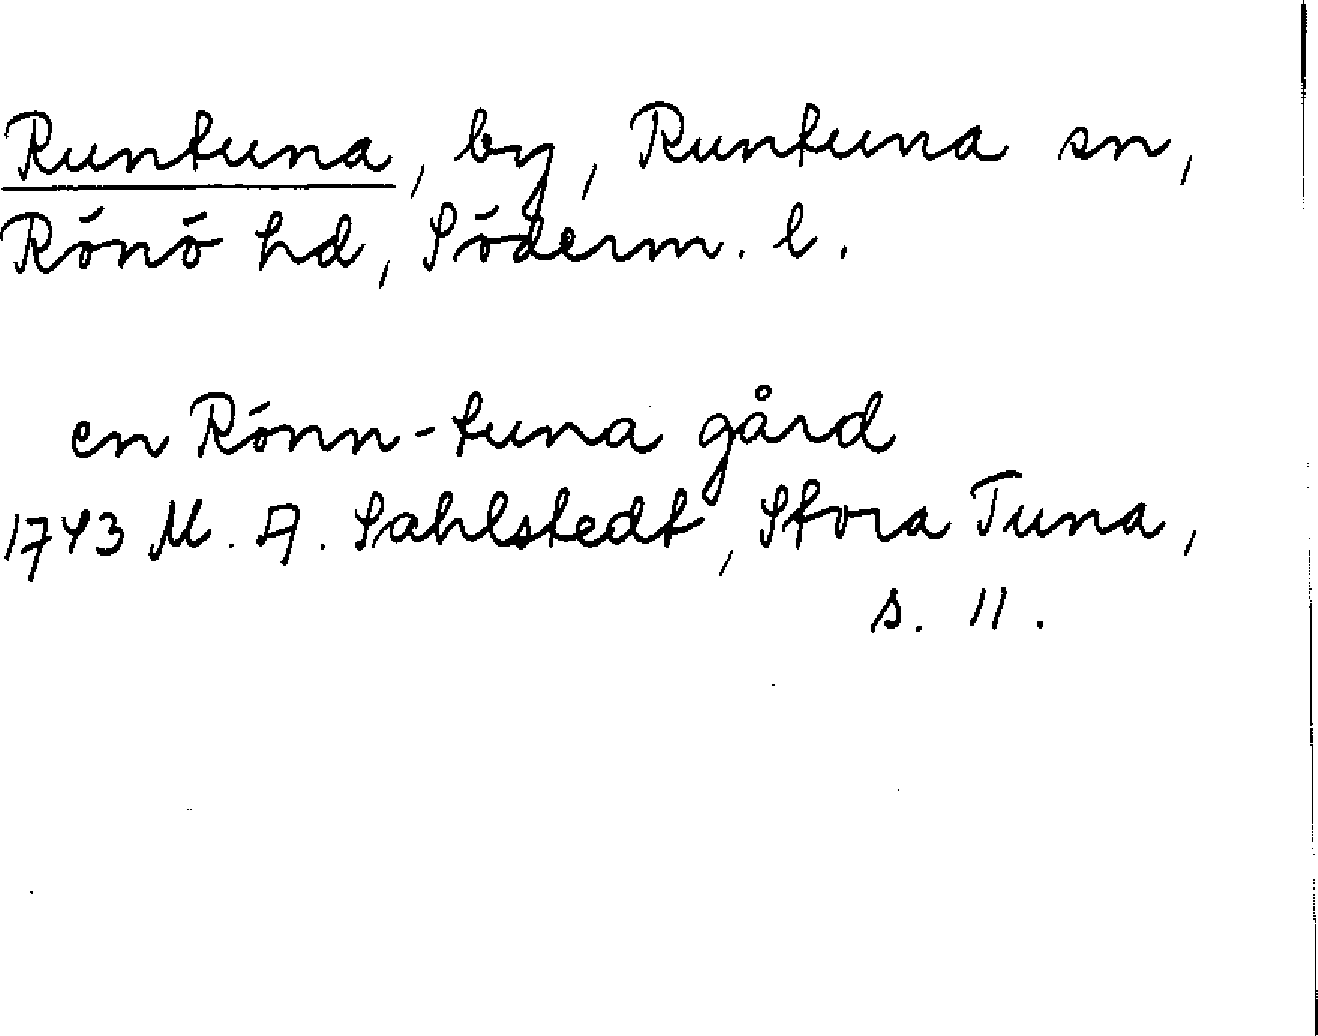 Runtuna, by, Runtuna sn,
Rönö hd, Söderm. l.
en Rönn-tuna gård
1743 M. A. Sahlstedt, Stora Tuna,
s. 11.